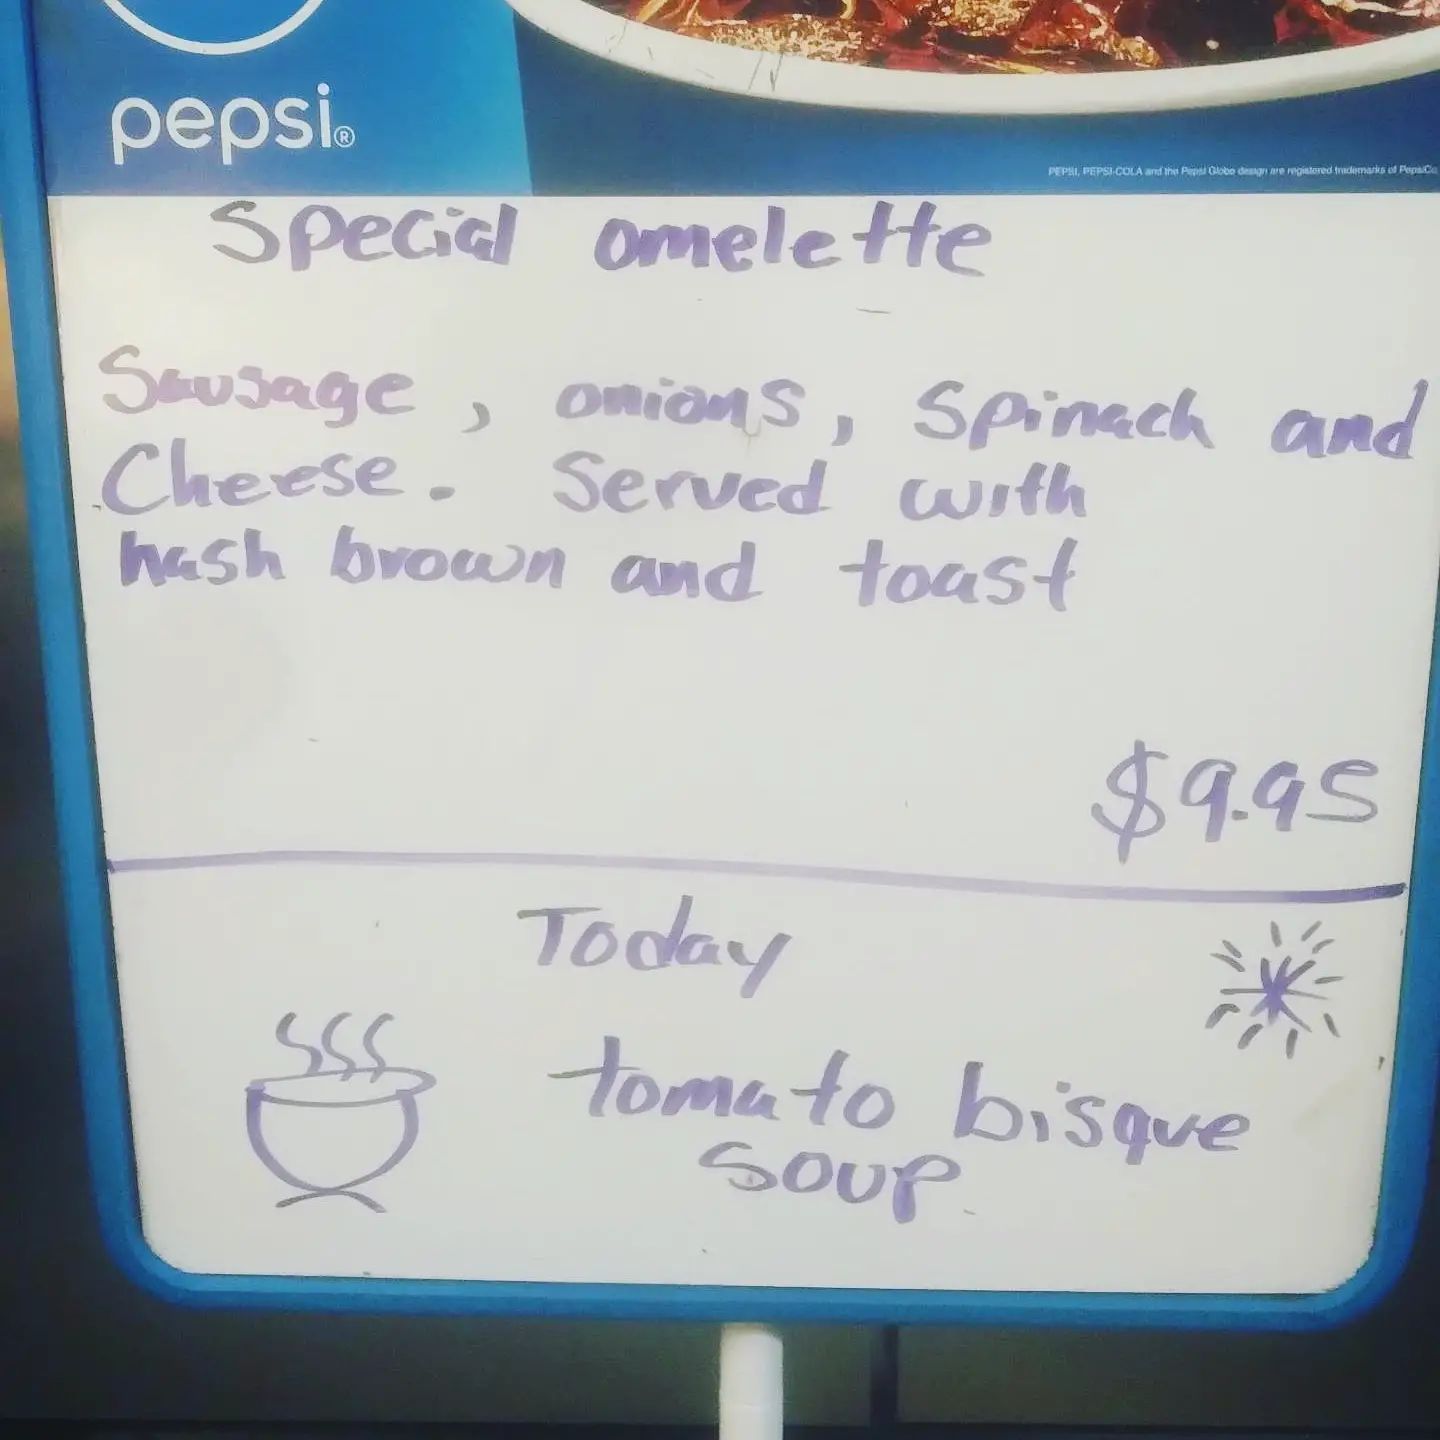 pepsi®
PEPSI, PEPSI-COLA and the Pepsi Globe design are registered trademarks of PepsiCo
Special omelette
Sausage, onions, Spinach and
Cheese. Served with
hash brown and toast
$9.95
Today
tomato bisque
soup